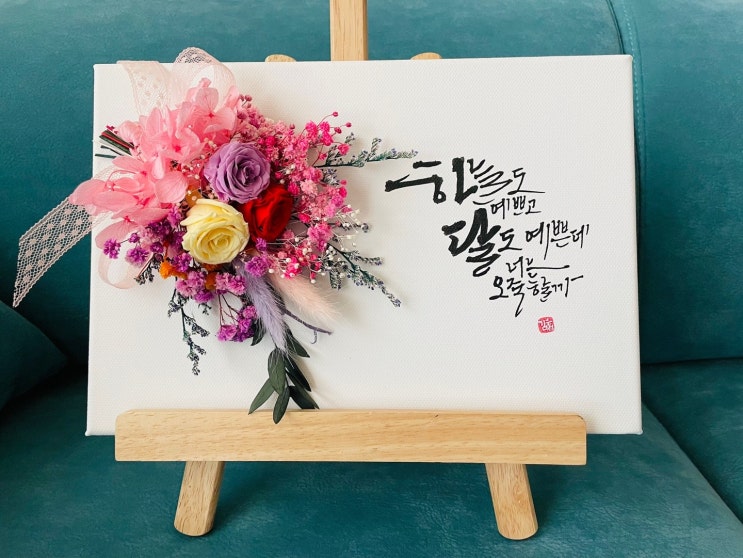 하늘도
예쁘고
달도 예쁜데
너는
오죽할까